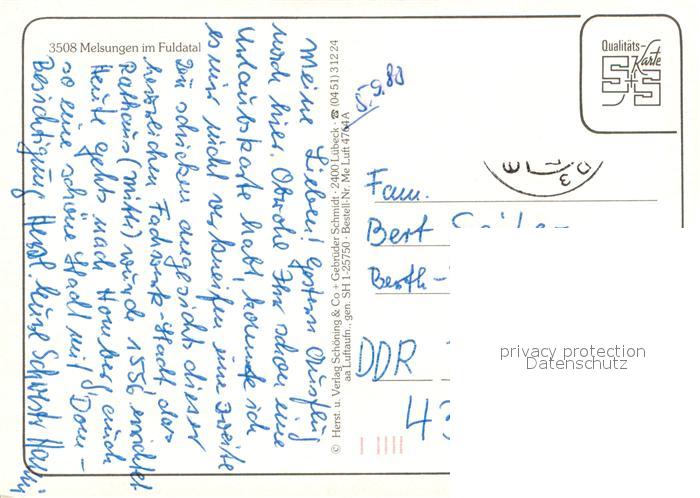 3508 Melsungen im Fuldatal
Qualitäts-
Karte
S+S
5.9.80
Meine Lieben! Gestern Ausflug
nach hier. Obwohl Ihr schon eine
Urlaubskarte habt, konnte ich
es mir nicht verkneifen eine zweite
zu schicken angesichts dieser
herrlichen Fachwerk-Stadt. das
Rathaus (mitte) wurde 1556 errichtet
Heute gehts nach Homberg, auch
so eine schöne Stadt mit Dom-
Besichtigung. Herzl. Eure Schwester
© Herst. u. Verlag Schöning & Co + Gebrüder Schmidt · 2400 Lübeck · ☎ (0451) 31224
aa Luftaufn., gen. SH 1-25750 · Bestell-Nr. Me Luft 4764A
Fam.
Bert
Berth-
DDR
43
privacy protection
Datenschutz